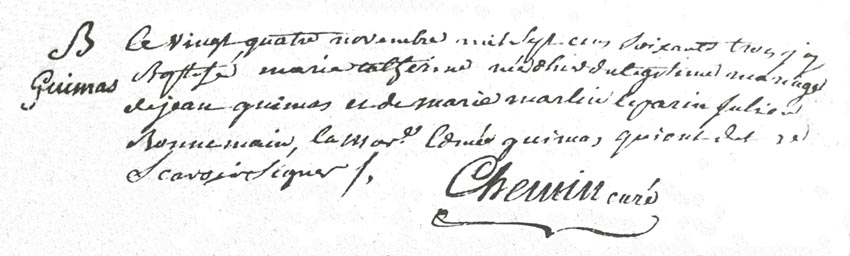 B
Guimas
Ce vingt quatre novembre mil Sept cens Soixante trois j'ay
Baptisé marie catherine née d'hier du legitime mariage
de jean guimas et de marie martin le parin Julien
Bonnemain, la mar.ne guimas, qui ont dit ne
Scavoir Signer /.
Chemin curé